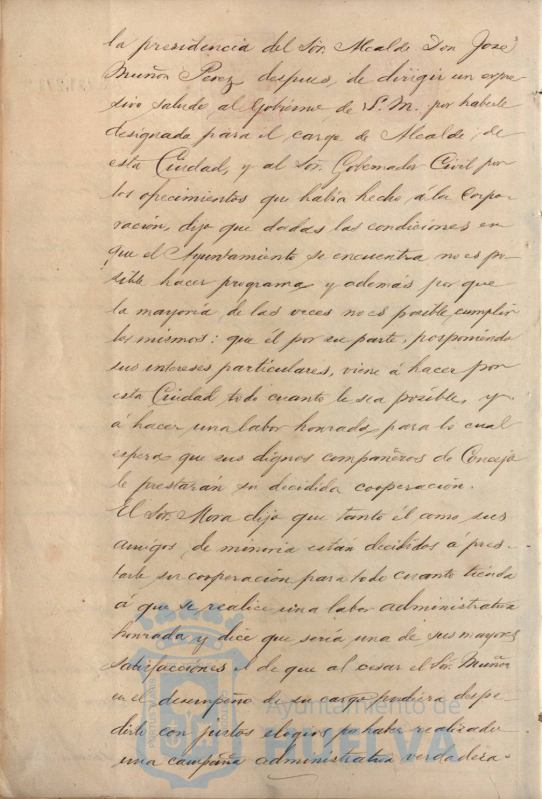 la presidencia del Sor. Alcalde Don José
Muñoz Perez despues, de dirigir un expre
sivo saludo al Gobierno de S. M. por haberle
designado para el cargo de Alcalde de
esta Ciudad, y al Sor. Gobernador Civil por
los ofrecimientos que habia hecho, á la Corpo-
ración, dijo que dadas las condiciones en
que el Ayuntamiento se encuentra no es po-
sible hacer programa y además por que
la mayoría de las veces no es posible cumplir
los mismos: que él por su parte, posponiendo
sus intereses particulares, viene á hacer por
esta Ciudad todo cuanto le sea posible, y
á hacer una labor honrada, para lo cual
espera que sus dignos compañeros de Concejo
le prestarán su decidida cooperación.
El Sor. Mora dijo que tanto él como sus
amigos de minoria están decididos á pres-
tarle su cooperación para todo cuanto tienda
á que se realice una labor administrativa
honrada y dice que sería una de sus mayores
satisfacciones el de que al cesar el Sor. Muñoz
en el desempeño de su cargo pudiera despe-
dirlo con justos elogios por haber realizado
una campaña administrativa verdadera-
Ayuntamiento de
HUELVA